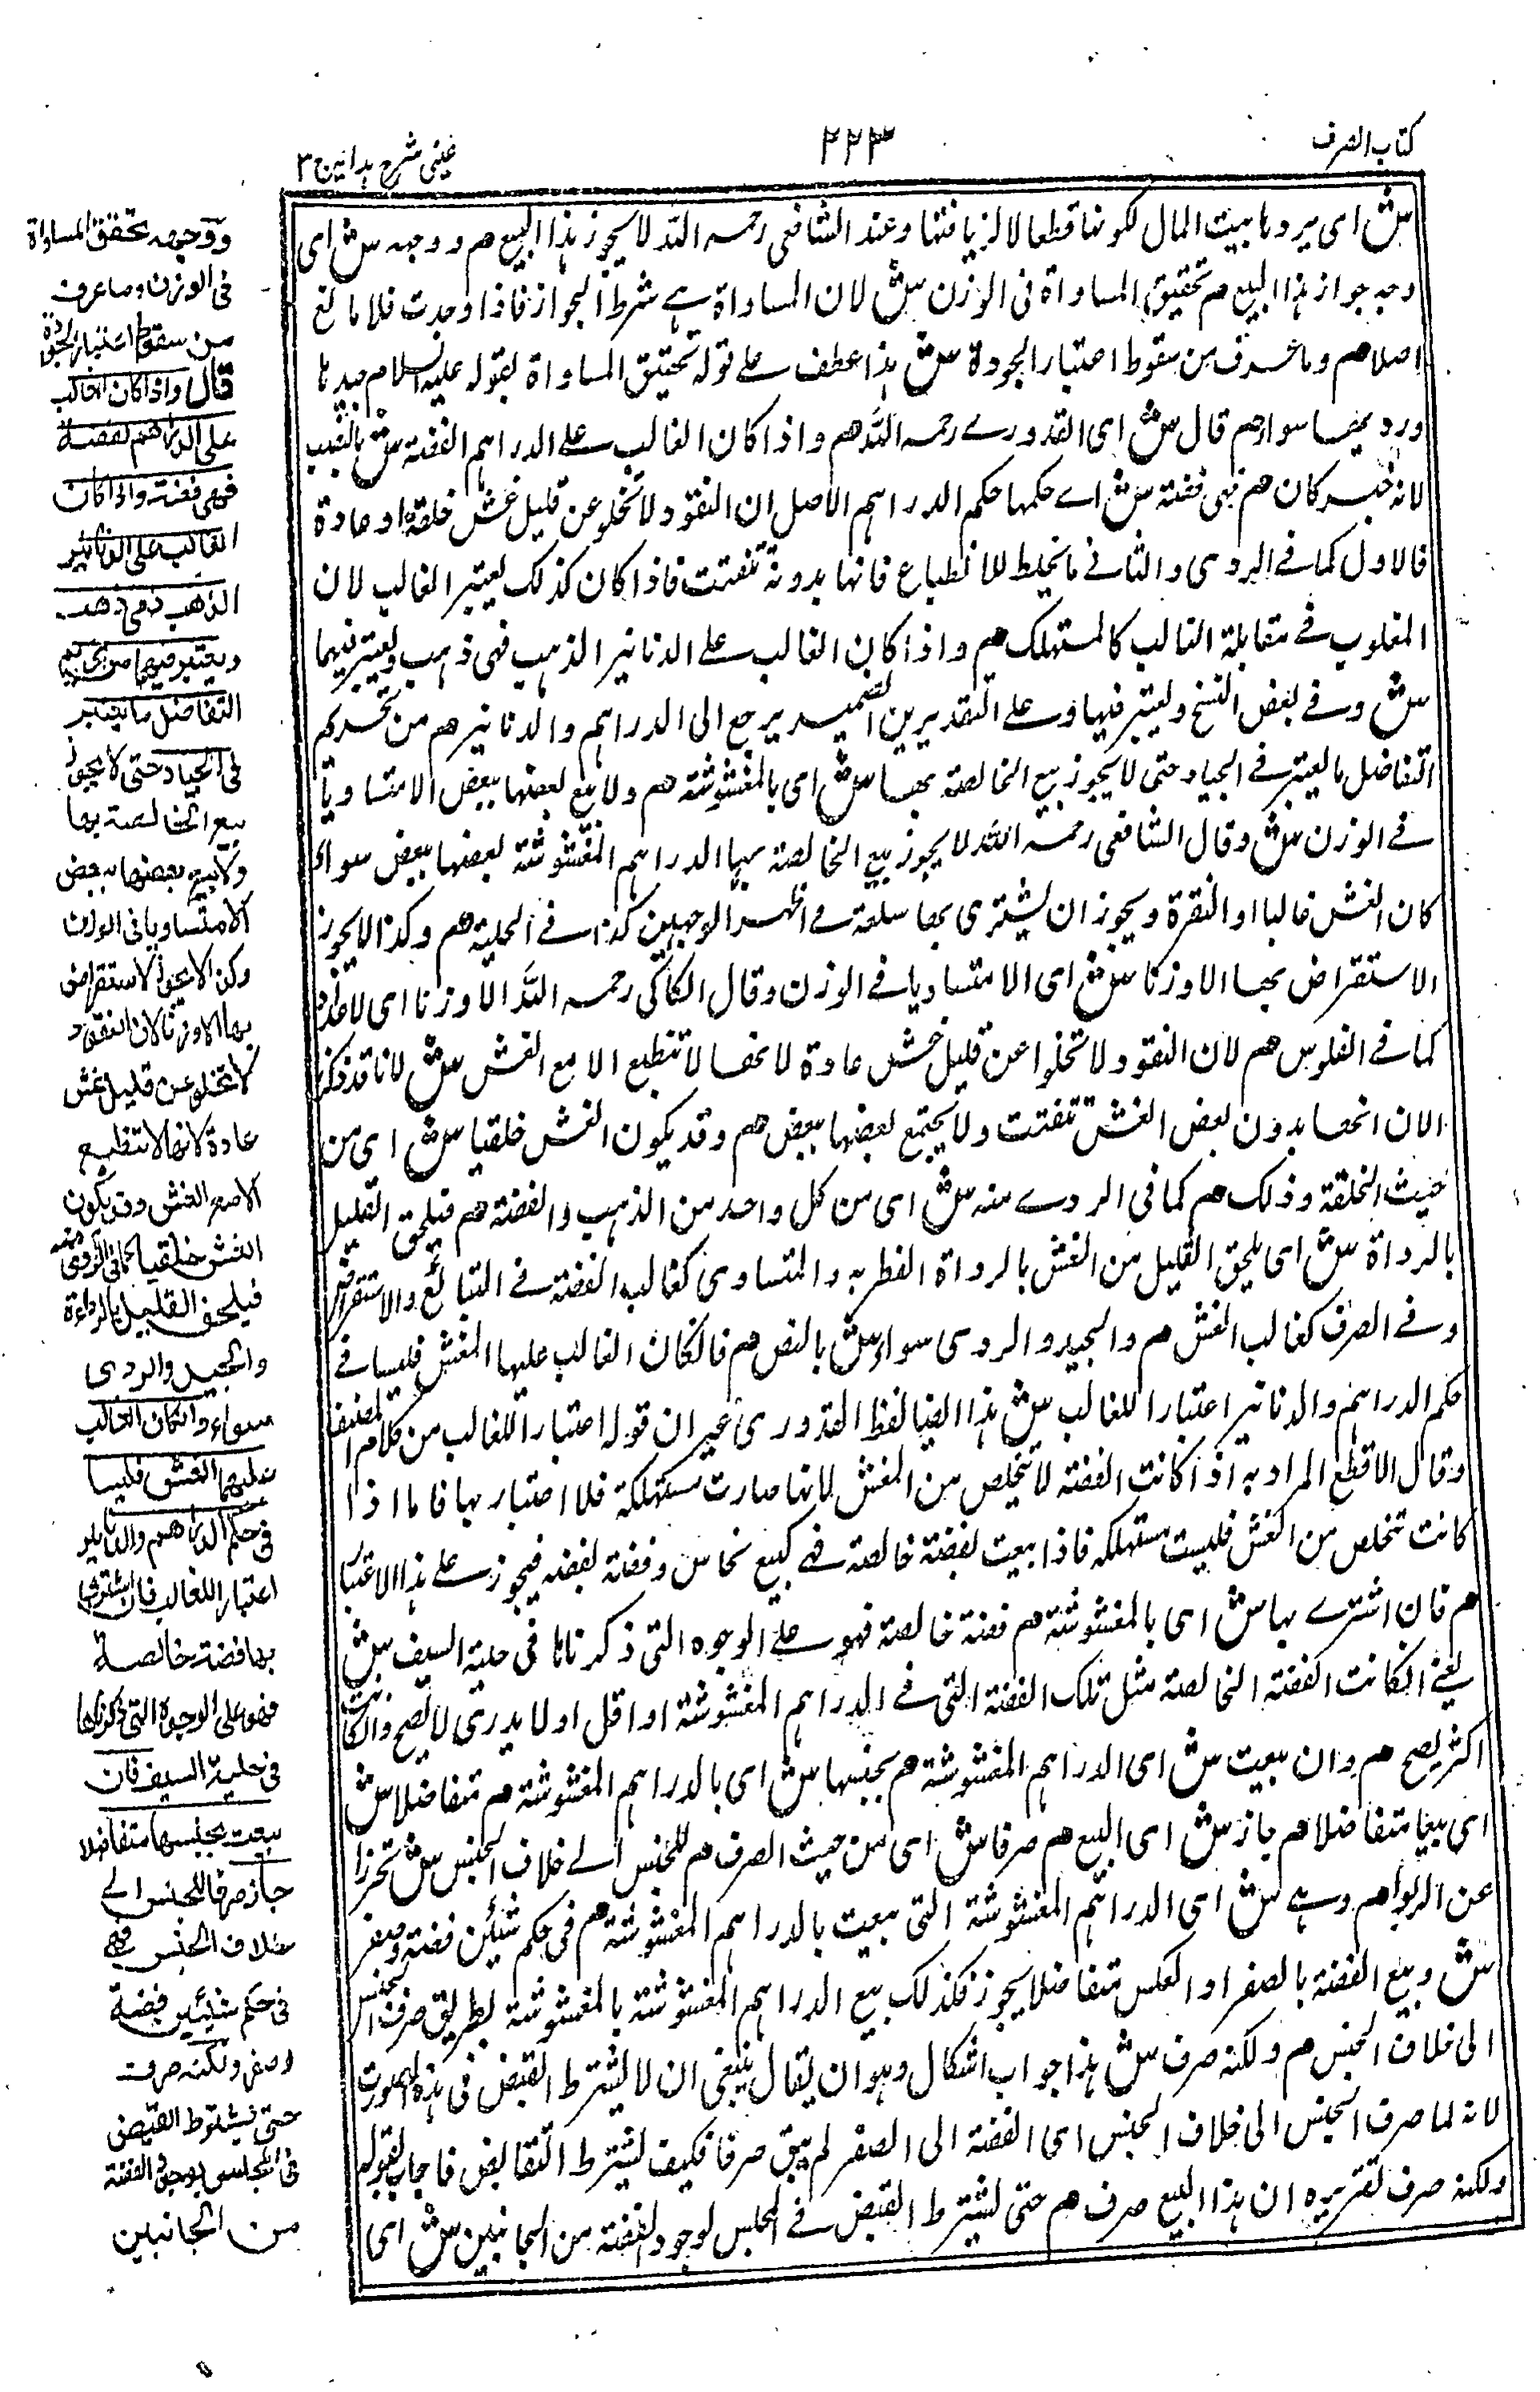 كتاب الصرف
٢٢٣
عینی شرح ہدایہ ج ٣
ش ای یردہا بیت المال لکونہا قطعا لا لزیافتہا وعند الشافعی رحمہ اللہ لا یجوز ہذا البیع م ووجہہ ش ای
وجہ جواز ہذا البیع م تحقیق المساواة فی الوزن ش لان المساواة ہے شرط الجواز فاذا وجدت فلا مانع
اصلا م وما عرف من سقوط اعتبار الجودة ش ہذا عطف علے قولہ تحقیق المساواة لقولہ علیہ السلام جیدہا
وردیہا سواء م قال ش ای القدورے رحمہ اللہ م واذا کان الغالب علے الدراہم الفضة ش بالنصب
لانہ خبر کان م فہی فضة ش اے حکمہا حکم الدراہم الاصل ان النقود لا تخلو عن قلیل غش خلقة او عادة
فالاول کما فے الردی والثانے ما یخلط للانطباع فانہا بدونہ تتفتت فاذا کان کذلک یعتبر الغالب لان
المغلوب فے مقابلة الغالب کالمستہلک م واذا کان الغالب علے الدنانیر الذہب فہی ذہب ویعتبر فیہما
ش وفے بعض النسخ ویعتبر فیہا وعلے التقدیرین الضمیر یرجع الی الدراہم والدنانیر م من تحریم
التفاضل ما یعتبر فے الجیاد حتی لا یجوز بیع الخالصة بہا ش ای بالمغشوشة م ولا بیع بعضہا ببعض الا متساویا
فے الوزن ش وقال الشافعی رحمہ اللہ لا یجوز بیع الخالصة بہا الدراہم المغشوشة بعضہا ببعض سواء
کان الغش غالبا او النقرة ویجوز ان یشتری بہا سلعة فے اظہر الوجہین کذا فے الحلیة م وکذا لا یجوز
الاستقراض بہا الا وزنا ش ای الا متساویا فے الوزن وقال الکاکی رحمہ اللہ الا وزنا ای لا عددا
کما فے الفلوس م لان النقود لا تخلوا عن قلیل غش عادة لانہا لا تنطبع الا مع الغش ش لانا قد ذکرنا
الان انہا بدون بعض الغش تتفتت ولا یجتمع بعضہا ببعض م وقد یکون الغش خلقیا ش ای من
حیث الخلقة وذلک م کما فی الردے منہ ش ای من کل واحد من الذہب والفضة م فیلحق القلیل
بالرداة ش ای یلحق القلیل من الغش بالرداة الفطریہ والمتساوی کغالب الفضة فے التبائع والاستقراض
وفے الصرف کغالب الغش م والجید والردی سواء ش بالنص م فان کان الغالب علیہا الغش فلیسا فے
حکم الدراہم والدنانیر اعتبارا للغالب ش ہذا ایضا لفظ القدوری غیر ان قولہ اعتبارا للغالب من کلام المصنف
وقال الاقطع المراد بہ اذا کانت الفضة لا تخلص من الغش لانہا صارت مستہلکة فلا اعتبار بہا فاما اذا
کانت تخلص من الغش فلیست مستہلکہ فاذا بیعت بفضة خالصة فہی کبیع نحاس وفضة بفضة فیجوز علے ہذا الاعتبار
م فان اشترے بہا ش ای بالمغشوشة م فضة خالصة فہو علے الوجوہ التی ذکرناہا فی حلیة السیف ش
یعنے ان کانت الفضة الخالصة مثل تلک الفضة التی فے الدراہم المغشوشة او اقل او لا یدری لا یصح وان کانت
اکثر یصح م وان بیعت ش ای الدراہم المغشوشة م بجنسہا ش ای بالدراہم المغشوشة م متفاضلا ش
ای بیعا متفاضلا م جاز ش ای البیع م صرفا ش ای من حیث الصرف م للجنس الے خلاف الجنس ش تحرزا
عن الربوا م وہے ش ای الدراہم المغشوشة التی بیعت بالدراہم المغشوشة م فی حکم شیئین فضة وصفر
ش وبیع الفضة بالصفر او العکس متفاضلا یجوز فکذلک بیع الدراہم المغشوشة بالمغشوشة بطریق صرف الجنس
الی خلاف الجنس م ولکنہ صرف ش ہذا جواب اشکال وہو ان یقال ینبغی ان لا یشترط القبض فی ہذہ الصورة
لانہ لما صرف الجنس الی خلاف الجنس ای الفضة الی الصفر لم یبق صرفا فکیف یشترط التقابض فاجاب بقولہ
ولکنہ صرف تقریرہ ان ہذا البیع صرف م حتی یشترط القبض فے المجلس لوجود الفضة من الجانبین ش ای
ووجهه تحقق المساواة
فی الوزن وما عرف
من سقوط اعتبار الجودة
قال واذا کان الغالب
علی الدراهم الفضة
فهی فضة واذا کان
الغالب علی الدنانیر
الذهب فهی ذهب
ویعتبر فیهما من تحریم
التفاضل ما یعتبر
فی الجیاد حتی لا یجوز
بیع الخالصة بها
ولا بیع بعضها ببعض
الا متساویا فی الوزن
وکذا لا یجوز الاستقراض
بها الا وزنا لان النقود
لا تخلو عن قلیل غش
عادة لانها لا تنطبع
الا مع الغش وقد یکون
الغش خلقیا کما فی الردی منه
فیلحق القلیل بالرداءة
والجید والردی
سواء وان کان الغالب
علیهما الغش فلیسا
فی حکم الدراهم والدنانیر
اعتبارا للغالب فان اشتری
بها فضة خالصة
فهو علی الوجوه التی ذکرناها
فی حلیة السیف فان
بیعت بجنسها متفاضلا
جاز صرفا للجنس الی
خلاف الجنس فهی
فی حکم شیئین فضة
وصفر ولکنه صرف
حتی یشترط القبض
فی المجلس لوجود الفضة
من الجانبین